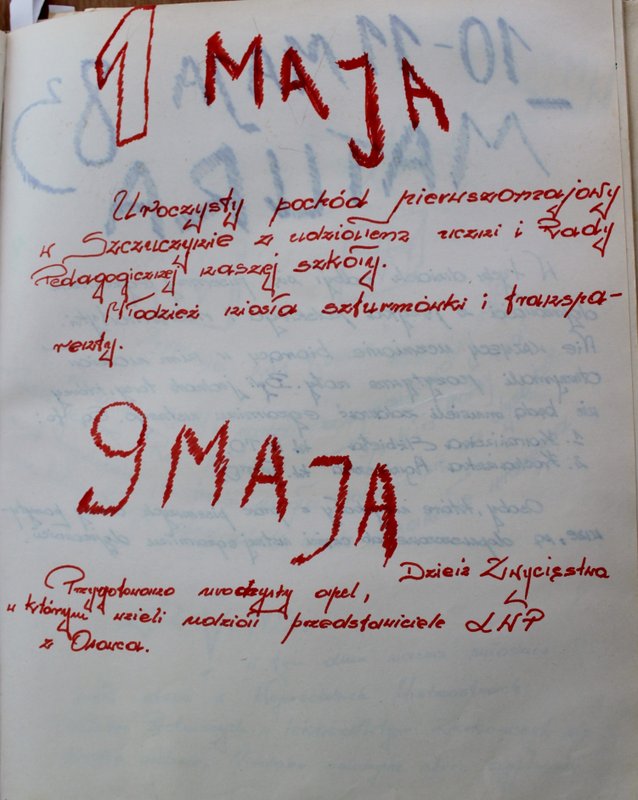 1 MAJA
Uroczysty pochód pierwszomajowy
w Szczuczynie z udziałem uczni i Rady
Pedagogicznej naszej szkoły.
Młodzież niosła szturmówki i transpa-
renty.
9 MAJA
Dzień Zwycięstwa
Przygotowano uroczysty apel,
w którym wzieli udział przedstawiciele LWP
z